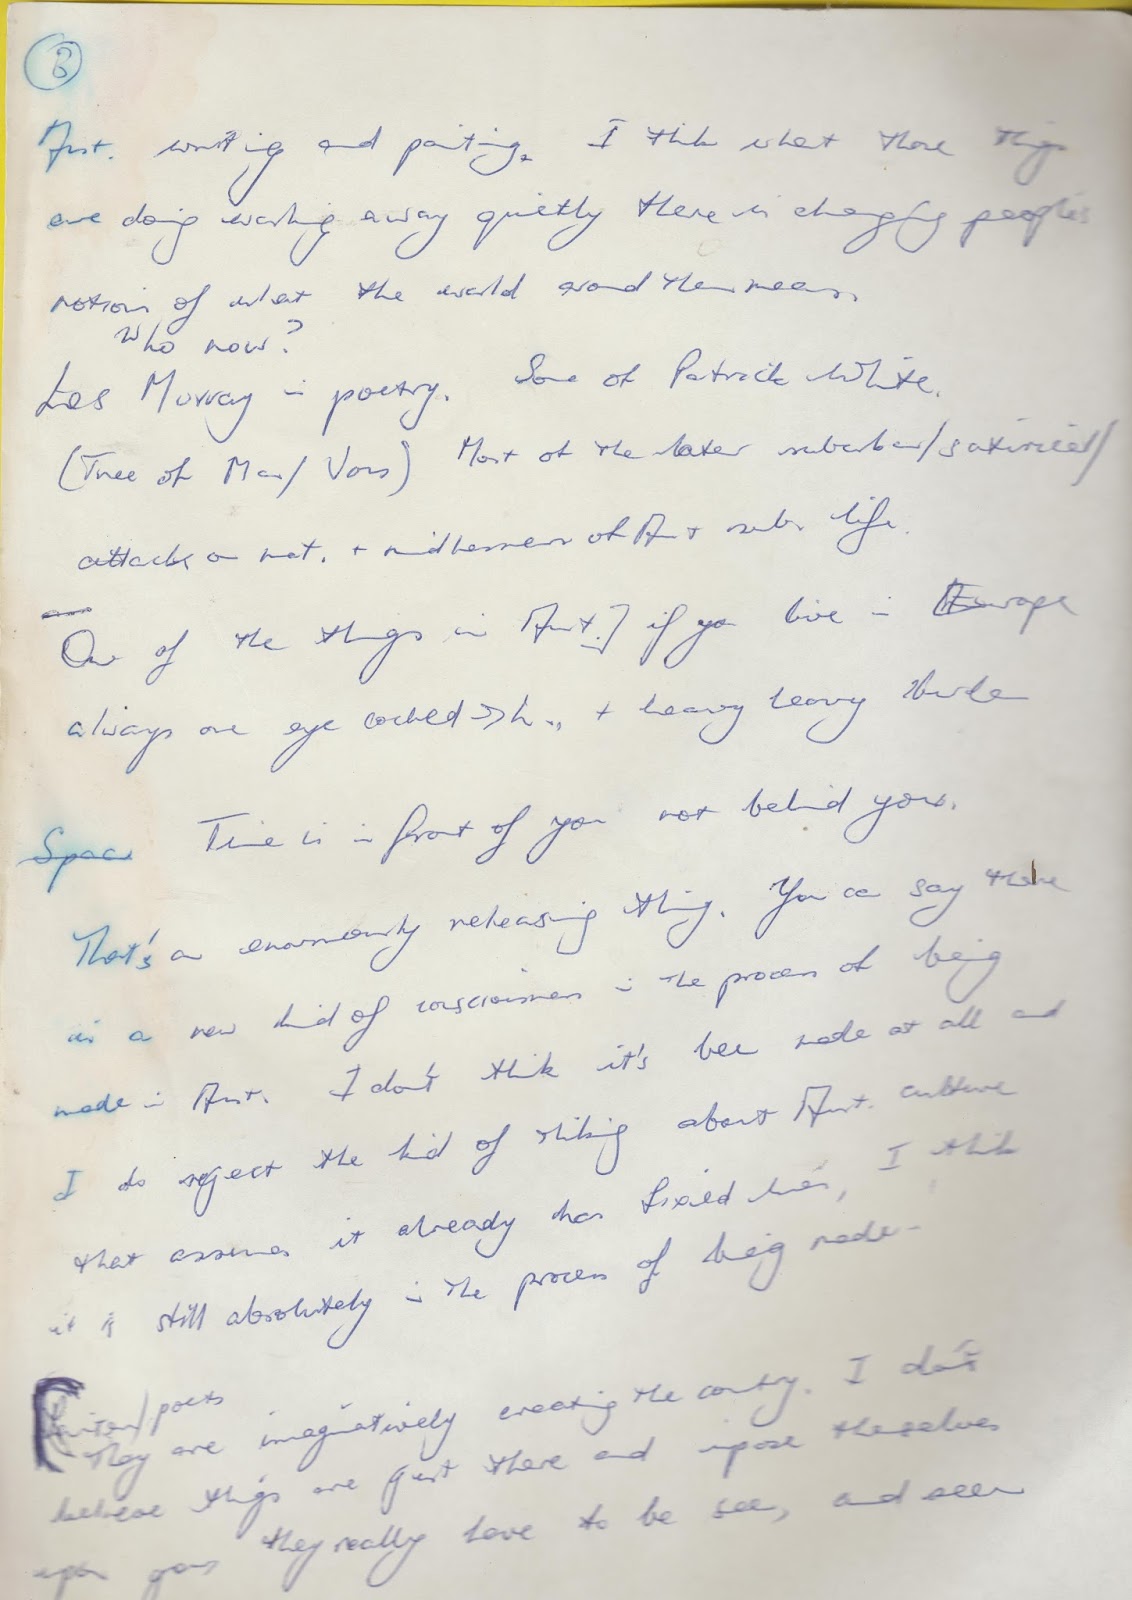 3
Aust. writing and painting. I think what those things
are doing working away quietly there is changing people's
notions of what the world around them means.
Who now?
Les Murray in poetry. Some of Patrick White.
(Tree of Man/ Voss) Most of the later suburban/satirical/
attacks on mat. + mindlessness of Aust subn life.
One of the things in Aust.] if you live in Europe
always one eye cocked → h.., + heavy heavy
Space Time is in front of you not behind you.
That's an enormously releasing thing. You can say there
is a new kind of consciousness in the process of being
made in Aust. I don't think it's been made at all and
I do reject the kind of thinking about Aust. culture
that assumes it already has fixed lines, I think
it is still absolutely in the process of being made -
writers/poets
They are imaginatively creating the country. I don't
believe things are just there and impose themselves
upon you they really have to be seen, and seen